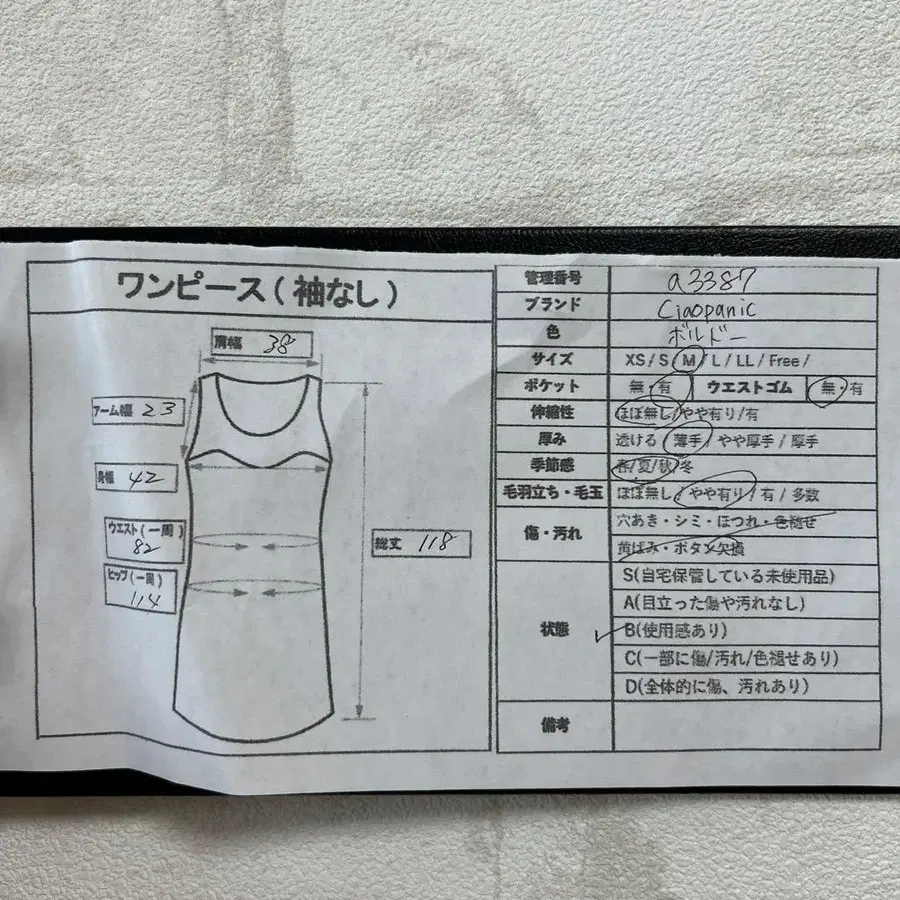 ワンピース(袖なし)
肩幅 38
アーム幅 23
身幅 42
ウエスト(一周)
82
ヒップ(一周)
114
総丈 118
管理番号 a3387
ブランド Ciaopanic
色 ボルドー
サイズ XS / S / M / L / LL / Free /
ポケット 無・有 ウエストゴム 無・有
伸縮性 ほぼ無し/やや有り/有
厚み 透ける / 薄手 / やや厚手 / 厚手
季節感 春/夏/秋/冬
毛羽立ち・毛玉 ほぼ無し/やや有り/有/多数
傷・汚れ 穴あき・シミ・ほつれ・色褪せ
黄ばみ・ボタン欠損
状態 S(自宅保管している未使用品)
A(目立った傷や汚れなし)
B(使用感あり)
C(一部に傷/汚れ/色褪せあり)
D(全体的に傷、汚れあり)
備考